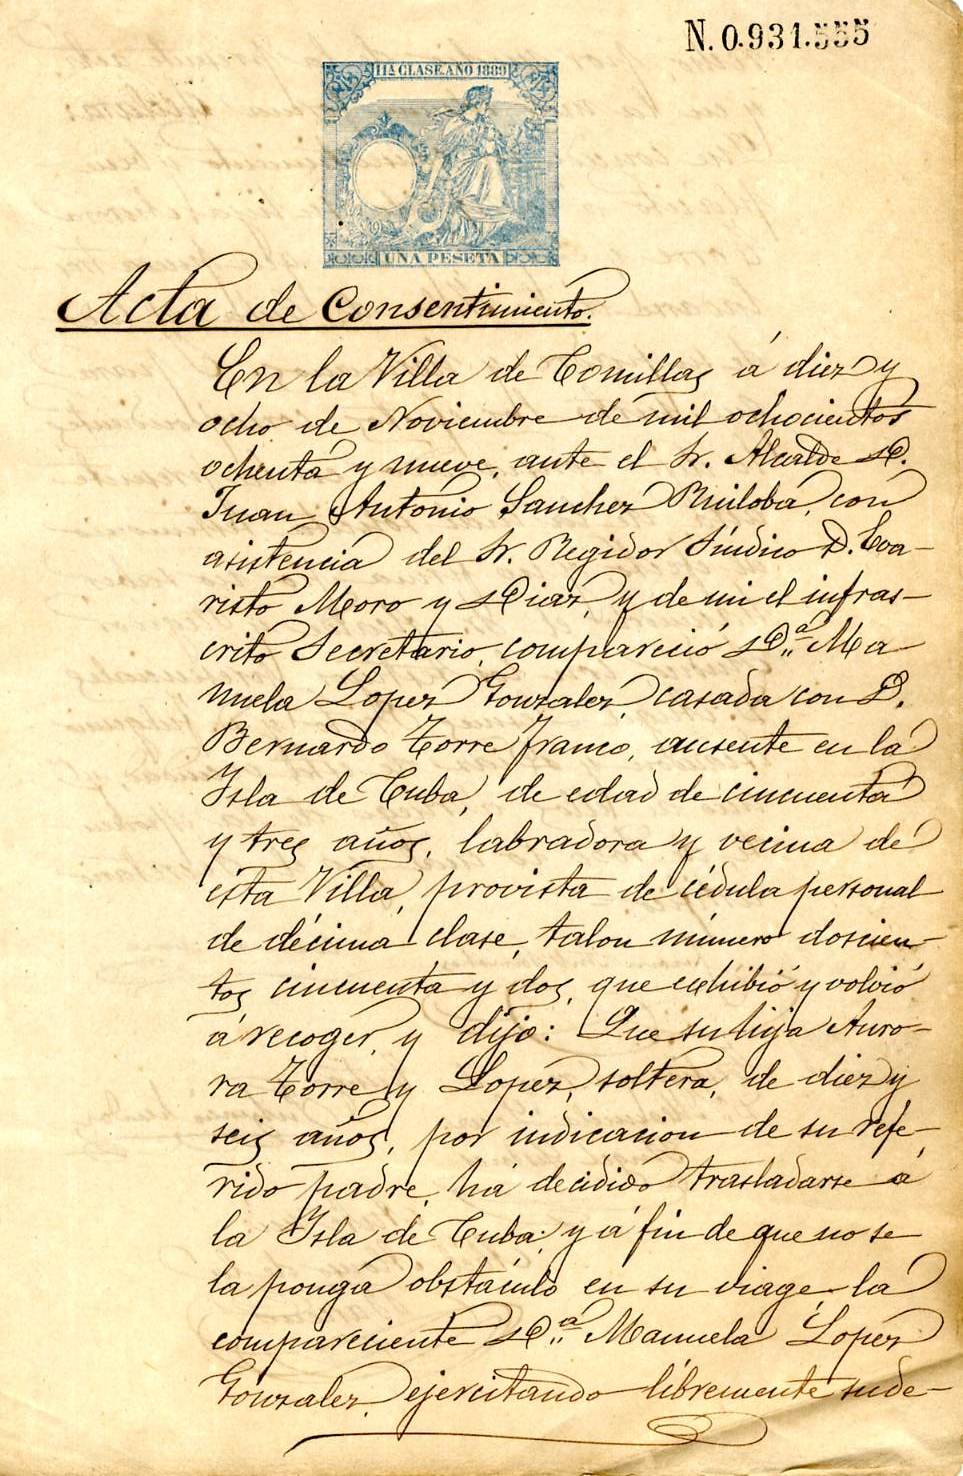 N. 0.931.555
11ª CLASE. AÑO 1889
UNA PESETA
Acta de Consentimiento.
En la Villa de Comillas á diez y
ocho de Noviembre de mil ochocientos
ochenta y nueve, ante el Sr. Alcalde D.
Juan Antonio Sanchez Ruiloba, con
asistencia del Sr. Regidor Síndico D. Eva-
risto Moro y Diaz, y de mi el infras-
crito Secretario, compareció D.ª Ma-
nuela Lopez Gonzalez, casada con D.
Bernardo Torre Franco, ausente en la
Isla de Cuba, de edad de cincuenta
y tres años, labradora y vecina de
esta Villa, provista de cédula personal
de décima clase, talon número doscien-
tos cincuenta y dos, que exhibió y volvió
á recoger, y dijo: Que su hija Auro-
ra Torre y Lopez, soltera, de diez y
seis años, por indicacion de su refe-
rido padre, há decidido trasladarse á
la Isla de Cuba; y á fin de que no se
la ponga obstáculo en su viage, la
compareciente D.ª Manuela Lopez
Gonzalez, ejercitando libremente su de-